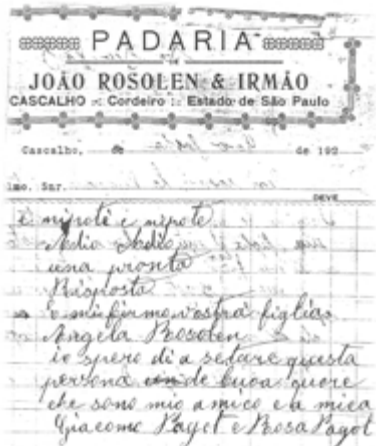 PADARIA
DE
JOÃO ROSOLEN & IRMÃO
CASCALHO :: Cordeiro :: Estado de São Paulo
Cascalho, de de 192
lmo. Snr.
DEVE
E nipoti e nipote
Adio Adio
una pronta
Risposta
e mi firmo vostra figlia
Angela Rosolen
io spero di a setare questa
persona de buon quore
che sono mio amico e a mica
Giacomo Pagot e Rosa Pagot